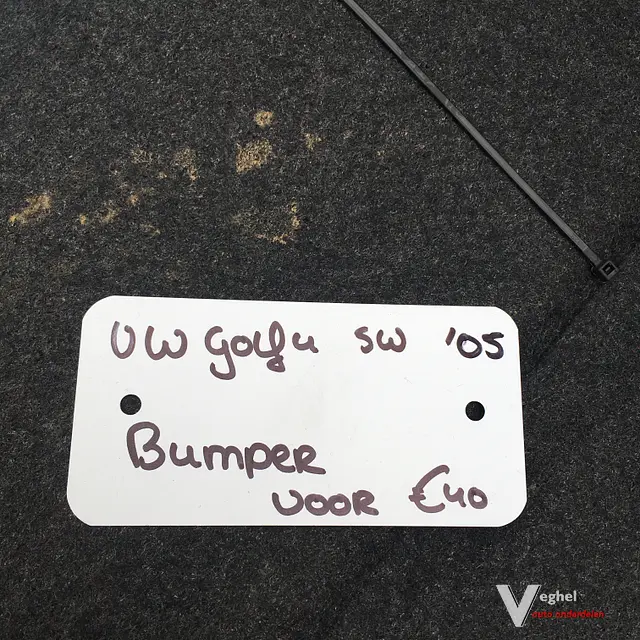 VW Golf 4 SW '05
Bumper
voor €40
Veghel
auto onderdelen